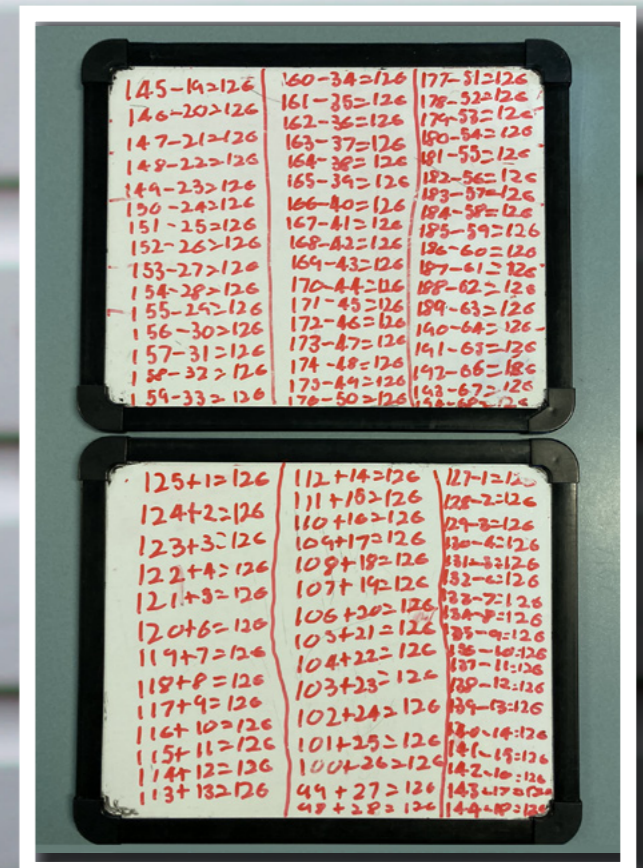 145-19=126
146-20=126
147-21=126
148-22=126
149-23=126
150-24=126
151-25=126
152-26=126
153-27=126
154-28=126
155-29=126
156-30=126
157-31=126
158-32=126
159-33=126
160-34=126
161-35=126
162-36=126
163-37=126
164-38=126
165-39=126
166-40=126
167-41=126
168-42=126
169-43=126
170-44=126
171-45=126
172-46=126
173-47=126
174-48=126
175-49=126
176-50=126
177-51=126
178-52=126
179-53=126
180-54=126
181-55=126
182-56=126
183-57=126
184-58=126
185-59=126
186-60=126
187-61=126
188-62=126
189-63=126
190-64=126
191-65=126
192-66=126
193-67=126
125+1=126
124+2=126
123+3=126
122+4=126
121+5=126
120+6=126
119+7=126
118+8=126
117+9=126
116+10=126
115+11=126
114+12=126
113+13=126
112+14=126
111+15=126
110+16=126
109+17=126
108+18=126
107+19=126
106+20=126
105+21=126
104+22=126
103+23=126
102+24=126
101+25=126
100+26=126
99+27=126
98+28=126
127-1=12
128-2=126
129-3=126
130-4=126
131-5=126
132-6=126
133-7=126
134-8=126
135-9=126
136-10=126
137-11=126
138-12=126
139-13=126
-14=126
141-15=126
142-16=126
143-17=126
144-18=126